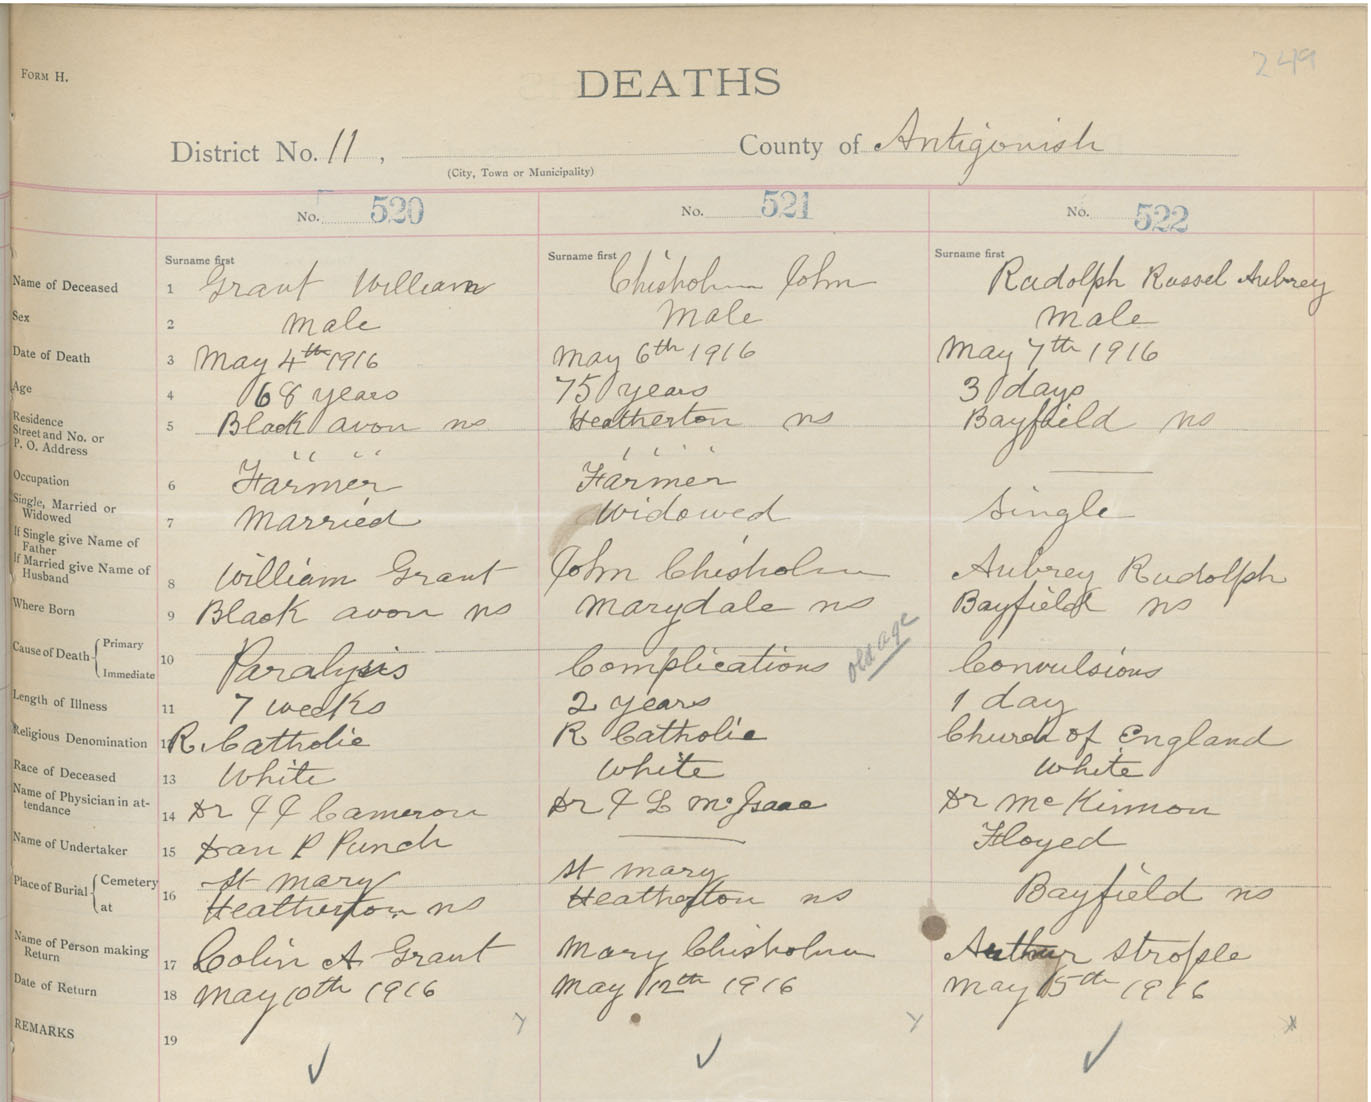 249
FORM H.
DEATHS
District No. 11, County of Antigonish
(City, Town or Municipality)
No. 520 No. 521 No. 522
Surname first Surname first Surname first
Name of Deceased 1 Grant William Chisholm John Rudolph Russel Aubrey
Sex 2 male Male male
Date of Death 3 May 4th 1916 May 6th 1916 May 7th 1916
Age 4 68 years 75 years 3 days
Residence
Street and No. or
P. O. Address 5 Black avon ns Heatherton ns Bayfield ns
Occupation 6 Farmer Farmer
Single, Married or
Widowed 7 Married Widowed Single
If Single give Name of
Father
If Married give Name of
Husband 8 William Grant John Chisholm Aubrey Rudolph
Where Born 9 Black avon ns Marydale ns Bayfield ns
Cause of Death { Primary
Immediate 10 Paralysis Complications old age Convulsions
Length of Illness 11 7 weeks 2 years 1 day
Religious Denomination 12 R. Catholic R Catholic Church of England
Race of Deceased 13 White White White
Name of Physician in at-
tendance 14 Dr J J Cameron Dr J L McIsaac Dr McKinnon
Name of Undertaker 15 Dan P Punch Floyed
Place of Burial { Cemetery St Mary St mary
at 16 Heatherton ns Heatherton ns Bayfield ns
Name of Person making
Return 17 Colin A Grant Mary Chisholm Arthur Strople
Date of Return 18 May 10th 1916 May 12th 1916 May 15th 1916
REMARKS 19